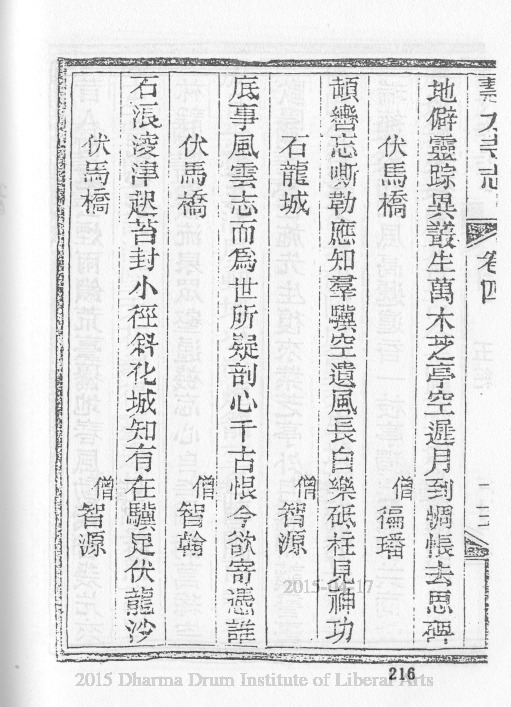 慧因寺志
卷四
地僻靈踪異叢生萬木芝亭空遲月到惆悵去思碑
伏馬橋
僧 徧璠
頓轡忘嘶勒應知羣驥空遺風長自樂砥柱見神功
石龍城
僧 智源
底事風雲志而爲世所疑剖心千古恨今欲寄憑誰
伏馬橋
僧 智翰
石漲淩津起苔封小徑斜化城知有在驥足伏龍沙
伏馬橋
僧 智源
216
2015-04-17
2015 Dharma Drum Institute of Liberal Arts